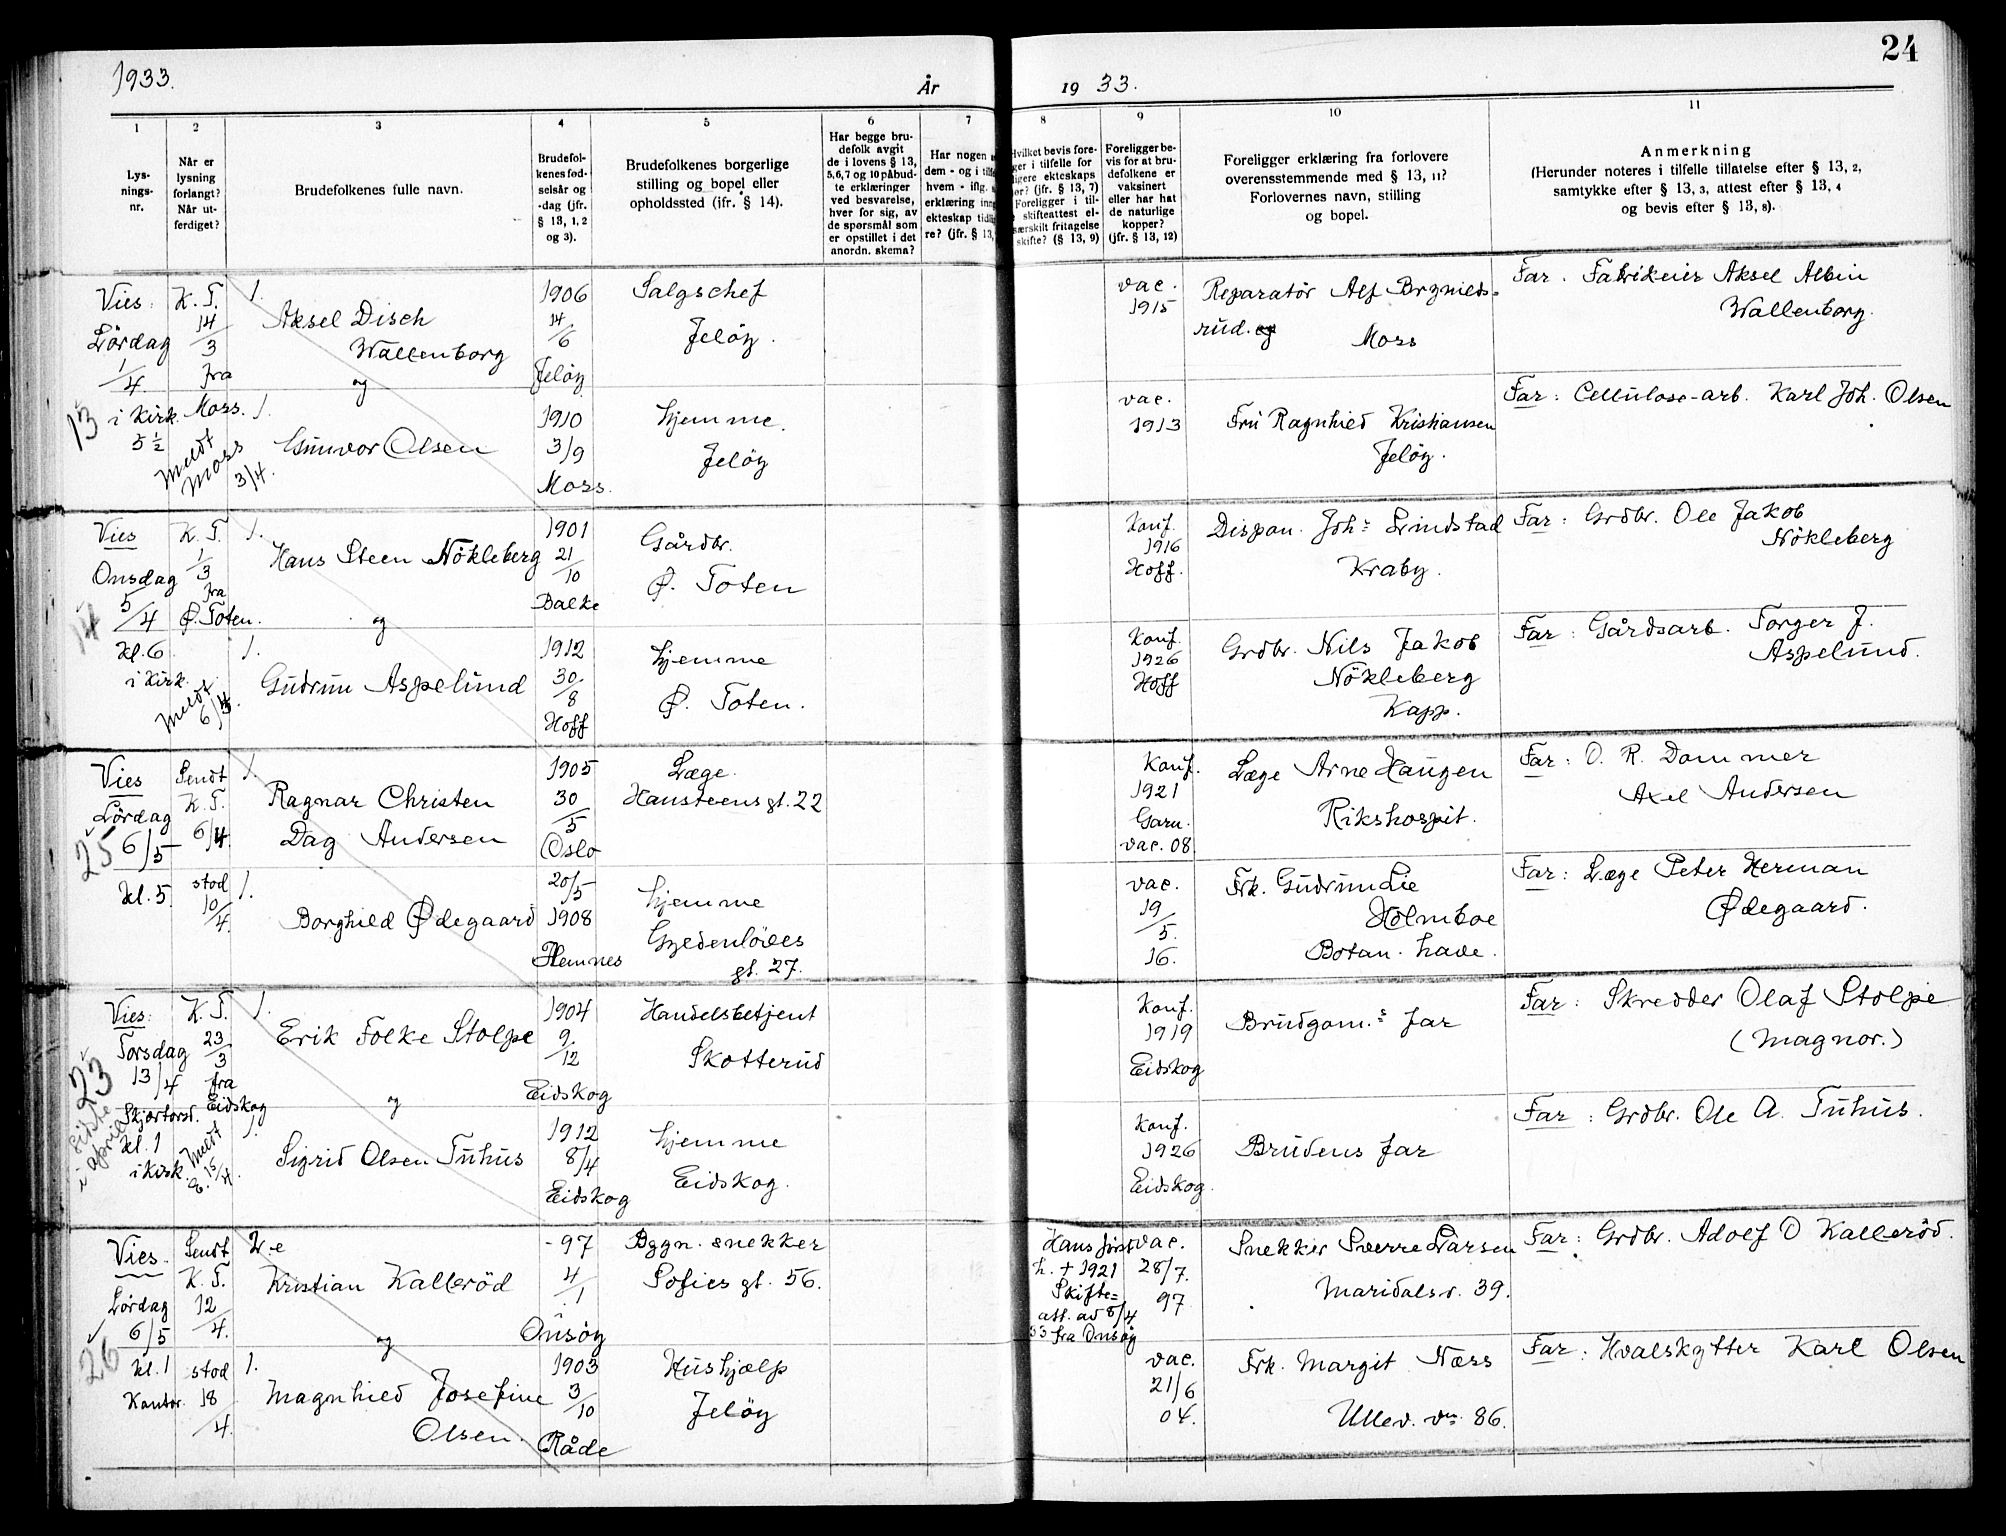 24
1933.
År
19 33.
1
2
3
4
5
6
7
8
9
10
11
Lys-
nings-
nr.
Når er
lysning
forlangt?
Når ut-
ferdiget?
Brudefolkenes fulle navn.
Brudefol-
kenes fød-
selsår og
-dag (jfr.
§ 13, 1, 2
og 3).
Brudefolkenes borgerlige
stilling og bopel eller
opholdssted (ifr. § 14).
Har begge bru-
defolk avgit
de i lovens § 13,
5,6,7 og 10 påbud-
te erklæringer
ved besvarelse,
hver for sig, av
de spørsmål som
er opstillet i det
anordn. skema?
Har nogen
dem - og i
hvem - iflg.
erklæring
ekteskap
re? (jfr. § 13,
Hvilket bevis fore-
ger i tilfelle for
ligere ekteskaps
? (jfr. § 13, 7)
Foreligger i til-
skifteattest el-
særskilt fritagelse
skifte? (§ 13, 9)
Foreligger be-
vis for at bru-
defolkene er
vaksinert
eller har hat
de naturlige
kopper?
(jfr. § 13, 12)
Foreligger erklæring fra forlovere
overensstemmende med § 13, 11?
Forlovernes navn, stilling
og bopel.
Anmerkning
(Herunder noteres i tilfelle tillatelse efter § 13, 2,
samtykke efter § 13, 3, attest efter § 13, 4
og bevis efter § 13, 8).
13
Vies:
Lördag
1/4.
i Kirk.
5 1/2
K. T.
14/3
fra
Moss.
Meldt
Moss
3/4.
1.
Aksel Disch
Wallenborg
og
1906
14/6
Jelöy
Salgschef
Jelöy.
vac.
1915
Reparatör Alf Brynilds-
rud.
Moss
Far. Fabrikeier Aksel Albin
Wallenborg.
1.
Gunvor Olsen
1910
3/9
Moss.
hjemme.
Jelöy
vac.
1913
Fru Ragnhild Kristiansen
Jelöy.
Far: Cellulose-arb. Karl Joh. Olsen
14
Vies
Onsdag
5/4
kl. 6
i Kirk.
K. T.
1/3
fra
Ø. Toten.
Meldt
6/4.
1.
Hans Steen Nökleberg
og
1901
21/10
Balke
Gårdbr.
Ø. Toten
Konf.
1916
Hoff.
Dispon. Johs Lindstad
Kraby.
Far: Grdbr. Ole Jakob
Nökleberg
1.
Gudrun Aspelund
1912
30/8
Hoff
hjemme
Ø. Toten.
Konf.
1926
Hoff
Grdbr. Nils Jakob
Nökleberg
Kapp.
Far: Gårdsarb. Torger J.
Aspelund.
25
Vies
Lördag
6/5
kl. 5.
Sendt
K. T.
6/4.
stod
10/4.
1.
Ragnar Christen
Dag Andersen
1905
30/5
Oslo
Læge.
Hansteens gt. 22
Konf.
1921
Garn.
vac. 08
Læge Arne Haugen
Rikshospit.
Far: O. R. Dommer
Axel Andersen
1.
Borghild Ødegaard
20/5
1908
Hemnes
hjemme
Gyldenlöves
gt. 27.
vac.
19/5.
16.
Frk. Gudrun Lie
Holmboe
Botan. have.
Far: Læge Peter Herman
Ødegaard.
23
i siste
april
Vies:
Torsdag
13/4
Skjærtorsd.
kl. 1
i Kirk.
K. T.
23/3
fra
Eidskog
Meldt
E. 15/4.
1.
Erik Folke Stolpe
og
1904
9/12
Eidskog
Handelsbetjent
Skotterud
Konf.
1919
Eidskog
Brudgom.s far
Far: Skredder Olaf Stolpe
(Magnor.)
1.
Sigrid Olsen Tuhus
1912
8/4
Eidskog
hjemme
Eidskog.
Konf.
1926
Eidskog.
Brudens far
Far: Grdbr. Ole A. Tuhus.
26
Vies.
Lördag
6/5
kl. 1
Kontor.
Sendt
K. T.
12/4.
stod
18/4.
2.e
Kristian Kalleröd
og
-97
4/1
Onsöy
Bygn. snekker
Sofies gt. 56.
Hans først
h. † 1921
Skifte=
att. ad 8/4
33 fra Onsöy
vac.
28/7.
97
Snekker Sverre Larsen
Maridalsv. 39.
Far: Grdbr. Adolf O Kalleröd.
1.
Magnhild Josefine
Olsen.
1903
3/10
Råde
Hushjælp
Jelöy
vac.
21/6
04.
Frk. Margit Næss
Ullev. vn. 86.
Far: Hvalskytter Karl Olsen